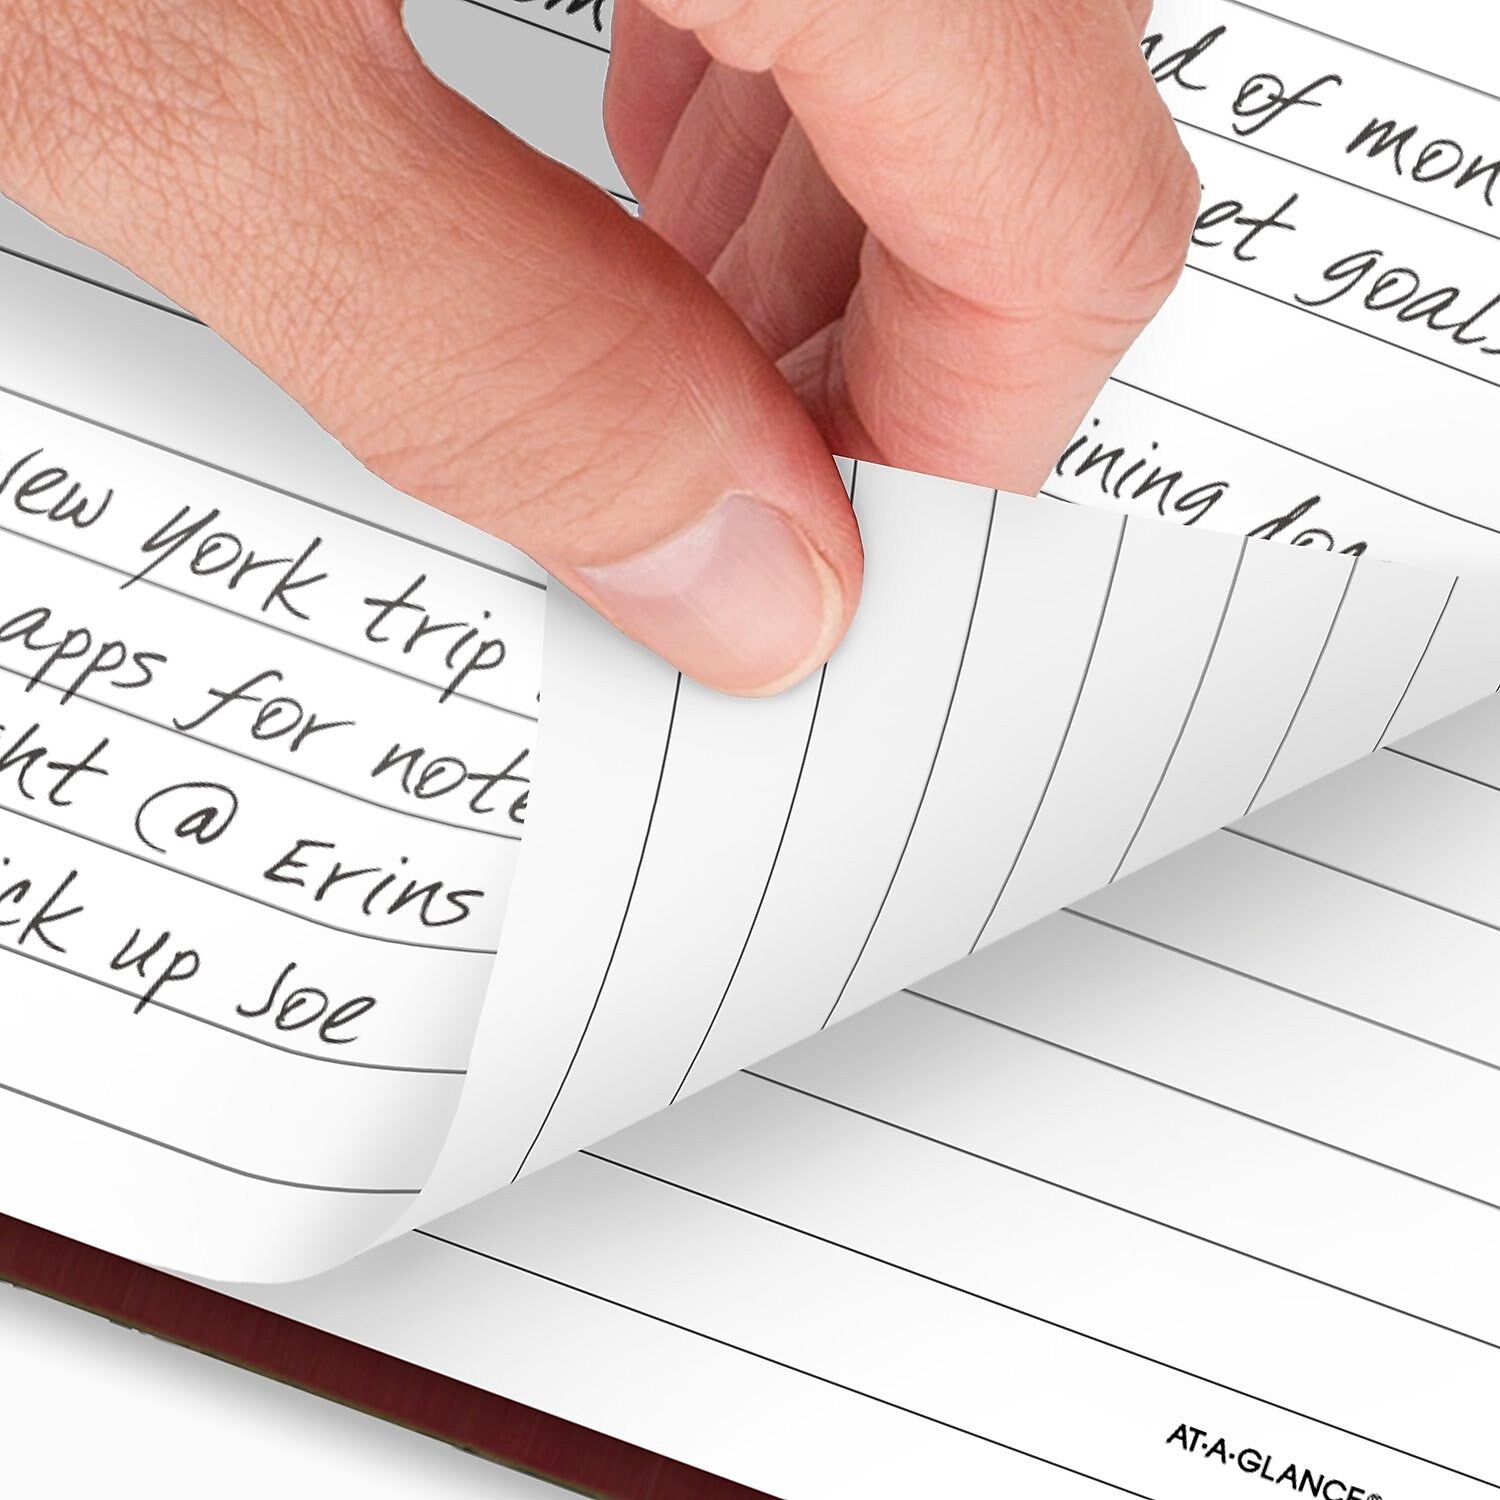 of mon
et goals
ining don
New York trip
apps for note
ht @ Erins
ick up Joe
AT-A-GLANCE®